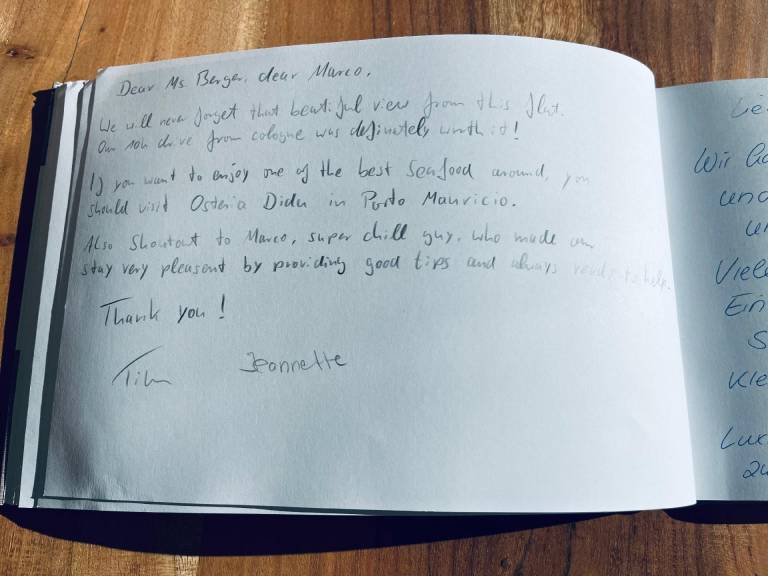 Dear Ms. Berger, dear Marco,
We will never forget that beautiful view from this flat.
Our 10h drive from cologne was definetely worth it!
If you want to enjoy one of the best Seafood around, you
should visit Osteria Didu in Porto Mauricio.
Also Shoutout to Marco, super chill guy, who made our
stay very pleasent by providing good tips and always ready to help.
Thank you!
Tim Jeannette
Lie
Wir
und
Viele
Ein
S
Kle
Lux